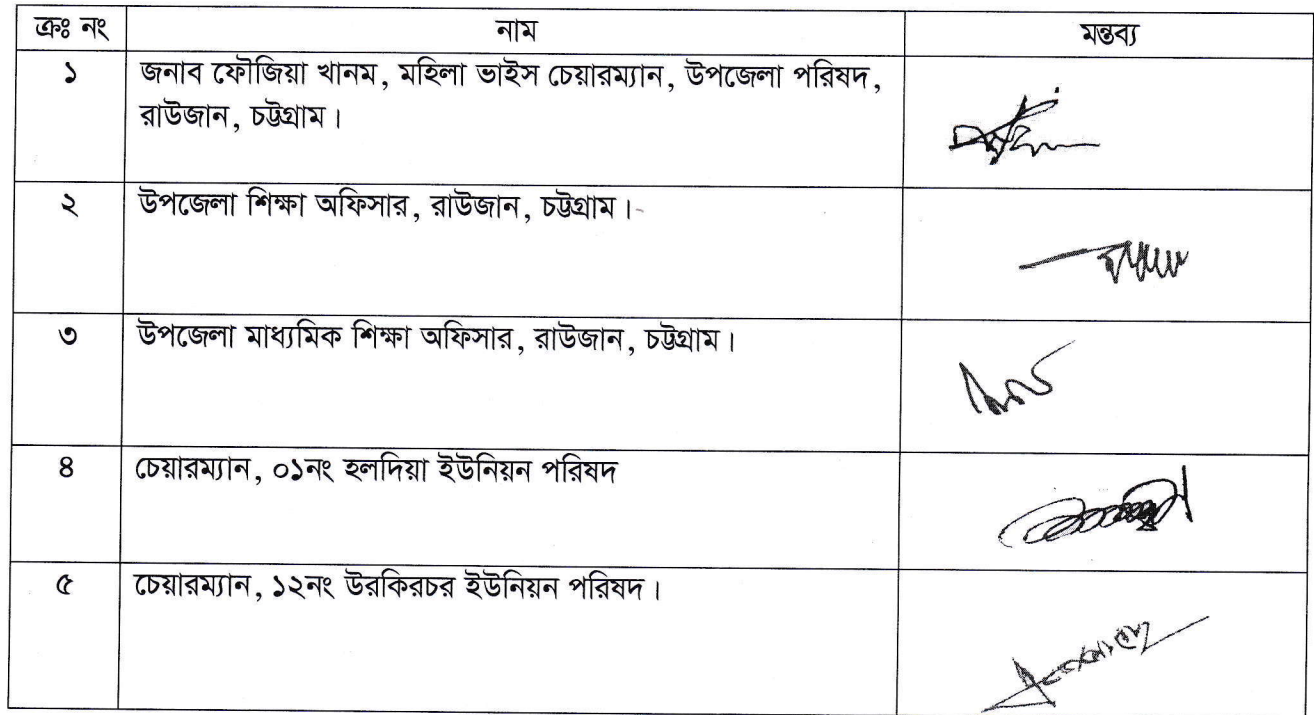 ক্রঃ নং নাম মন্তব্য
১ জনাব ফৌজিয়া খানম, মহিলা ভাইস চেয়ারম্যান, উপজেলা পরিষদ,
রাউজান, চট্টগ্রাম।
২ উপজেলা শিক্ষা অফিসার, রাউজান, চট্টগ্রাম।
৩ উপজেলা মাধ্যমিক শিক্ষা অফিসার, রাউজান, চট্টগ্রাম।
৪ চেয়ারম্যান, ০১নং হলদিয়া ইউনিয়ন পরিষদ
৫ চেয়ারম্যান, ১২নং উরকিরচর ইউনিয়ন পরিষদ।